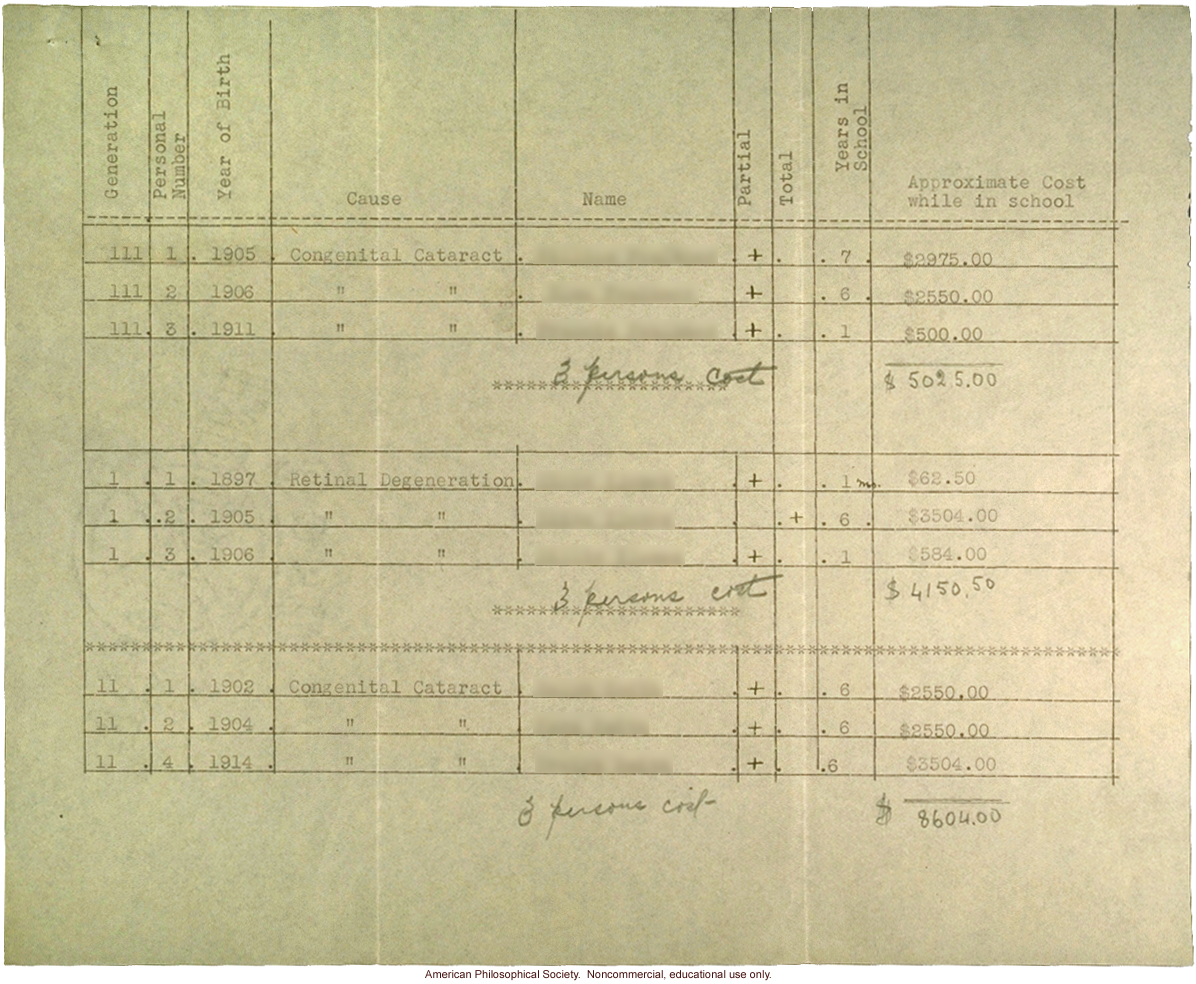 Generation Personal Number Year of Birth Cause Name Partial Total Years in School Approximate Cost while in school
111 1 . 1905 . Congenital Cataract . + . . 7 . $2975.00
111 2 . 1906 " " . + . 6 . $2550.00
111. 3 . 1911 . " " . + . . 1 $500.00
3 persons cost $ 5025.00
*************************
1 . 1 . 1897 . Retinal Degeneration. . + . . 1 mo. $62.50
1 . .2 . 1905 . " " . + . 6 . $3504.00
1 . 3 . 1906 . " " . + . . 1 $584.00
3 persons cost $ 4150.50
*************************
11 . 1 . 1902 . Congenital Cataract . . + . . 6 $2550.00
11 . 2 . 1904 . " " . . + . . 6 $2550.00
11 . 4 . 1914 . " " . . + . .6 $3504.00
3 persons cost $ 8604.00
American Philosophical Society. Noncommercial, educational use only.